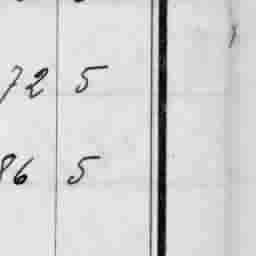 72 5
86 5